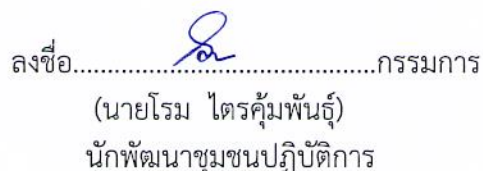 ลงชื่อ..........................................กรรมการ
(นายโรม ไตรคุ้มพันธุ์)
นักพัฒนาชุมชนปฏิบัติการ